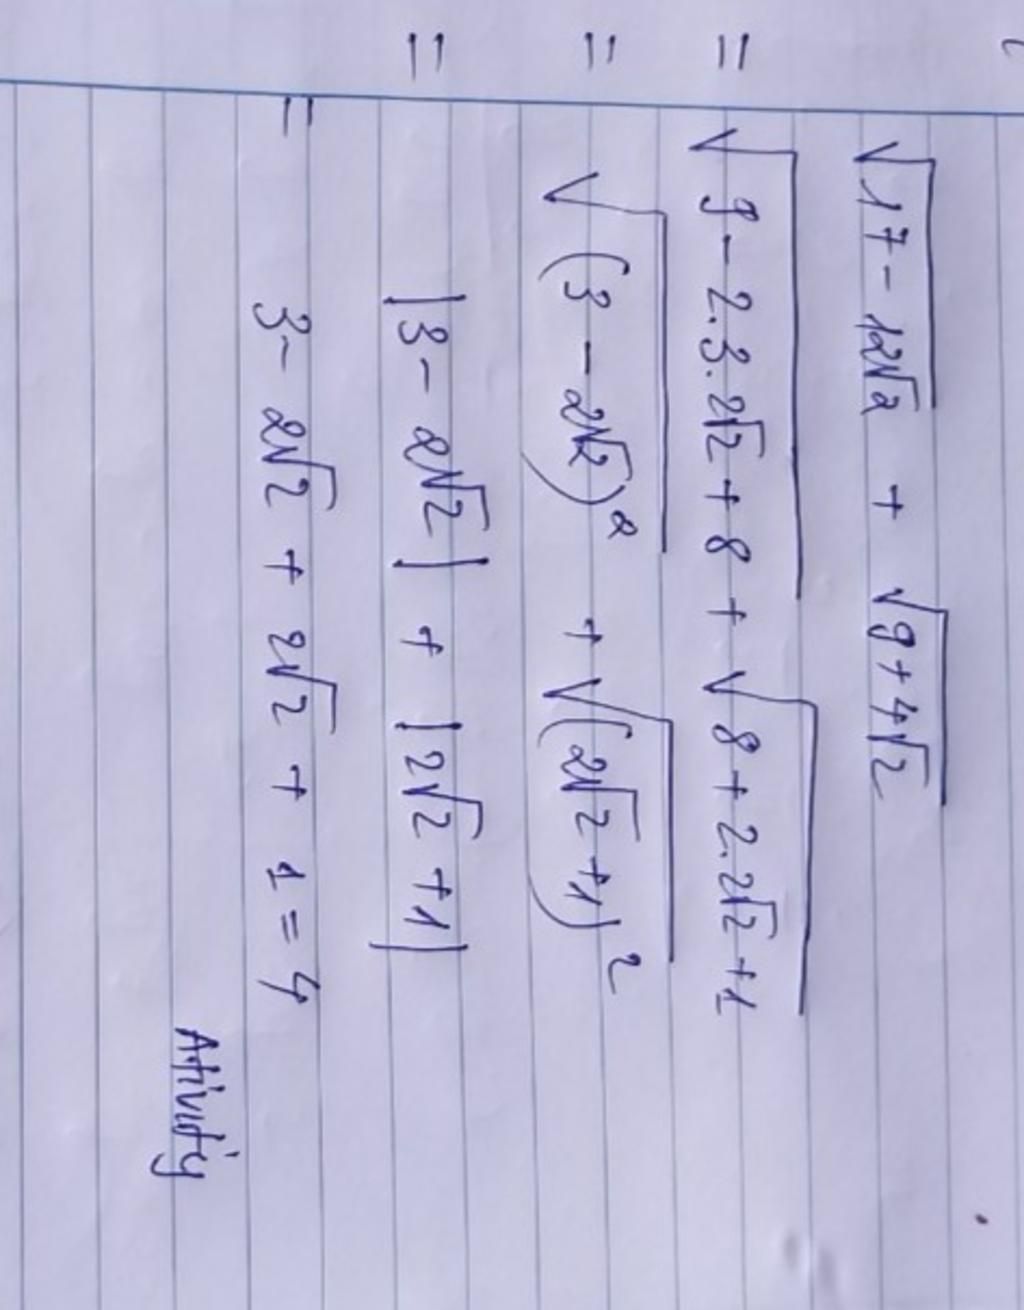 √17 - 12√2 + √9 + 4√2
= √9 - 2.3.2√2 + 8 + √8 + 2.2√2 + 1
= √(3 - 2√2)² + √(2√2 + 1)²
= |3 - 2√2| + |2√2 + 1|
= 3 - 2√2 + 2√2 + 1 = 4